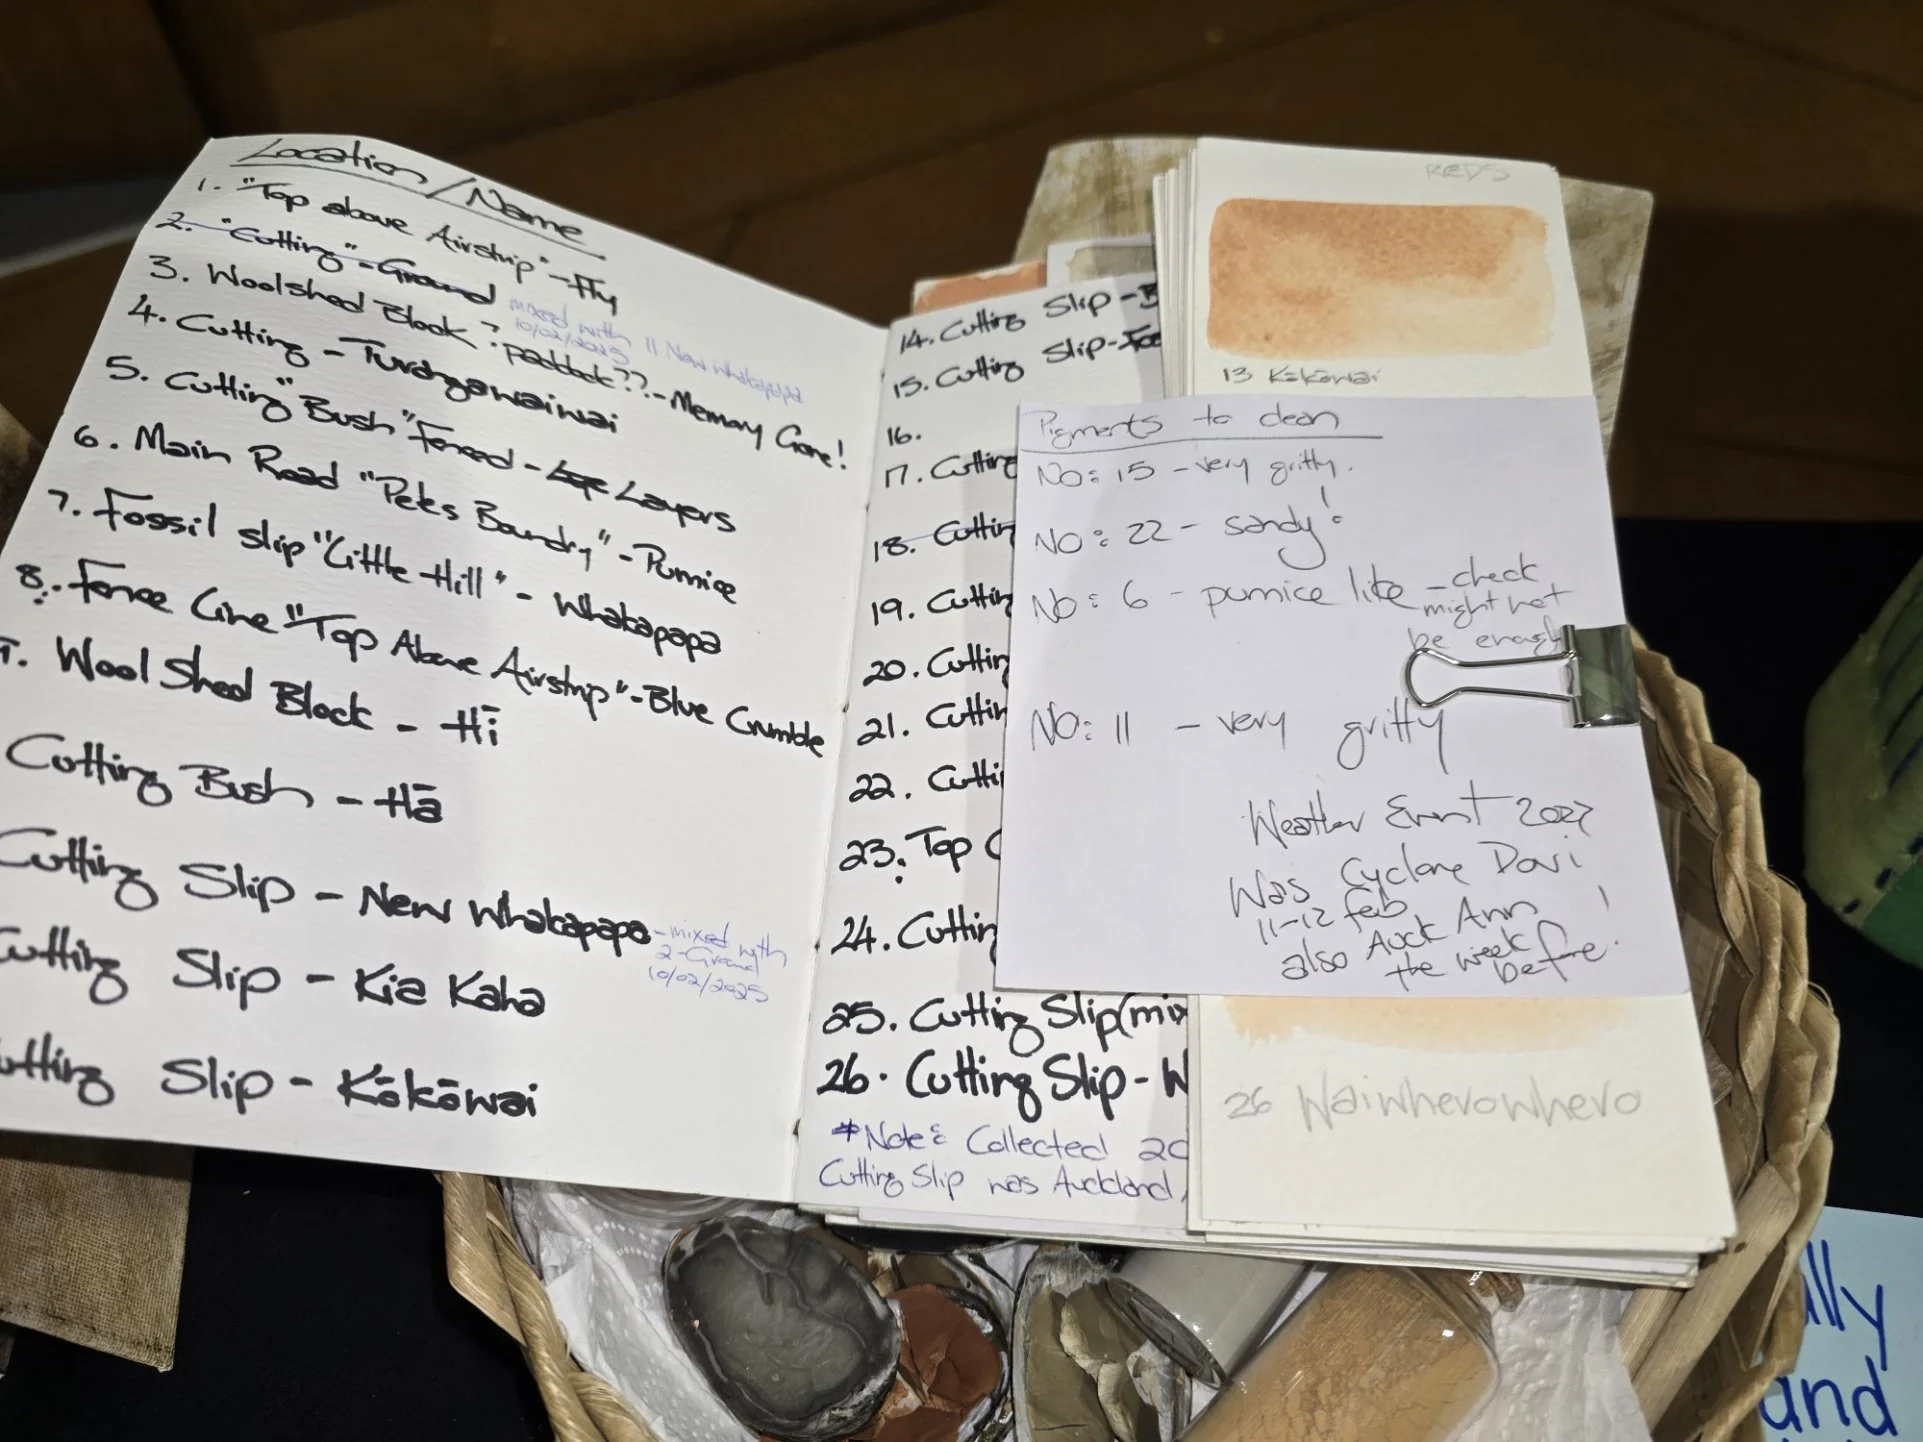 Location/Name
1. "Top above Airstrip" - Fly
2. "Cutting" - Ground
mixed with 11 New Whakapapa
10/02/2025
3. Woolshed Block ? paddock?? - Memory Gone!
4. Cutting - Turangawaiwai
5. Cutting "Bush" Fenced - Layers
6. Main Road "Petes Boundry" - Pumice
7. Fossil slip "Little Hill" - Whakapapa
8. Fence Line "Top Above Airstrip" - Blue Crumble
Wool Shed Block - Hī
Cutting Bush - Hā
Cutting Slip - New Whakapapa
- mixed with
2 - Ground
10/02/2025
Cutting Slip - Kia Kaha
utting Slip - Kōkōwai
14. Cutting Slip - B
15. Cutting Slip - Fos
16.
17. Cutting
18. Cuttin
19. Cuttin
20. Cuttin
21. Cuttin
22. Cutti
23. Top C
24. Cuttin
25. Cutting Slip (mix
26. Cutting Slip - W
* Note: Collected 20
Cutting Slip was Auckland
REDS
13 Kōkōwai
Pigments to clean
NO: 15 - very gritty.
NO: 22 - sandy!
NO: 6 - pumice like - check
might not
be enough
NO: 11 - very gritty
Weather Event
Was Cyclone Dovi
11-12 feb
also Auck Ann !
the week
before.
26 Waiwherowhero
lly
and